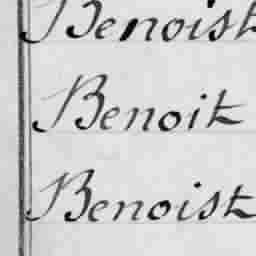 Benoist
Benoit
Benoist